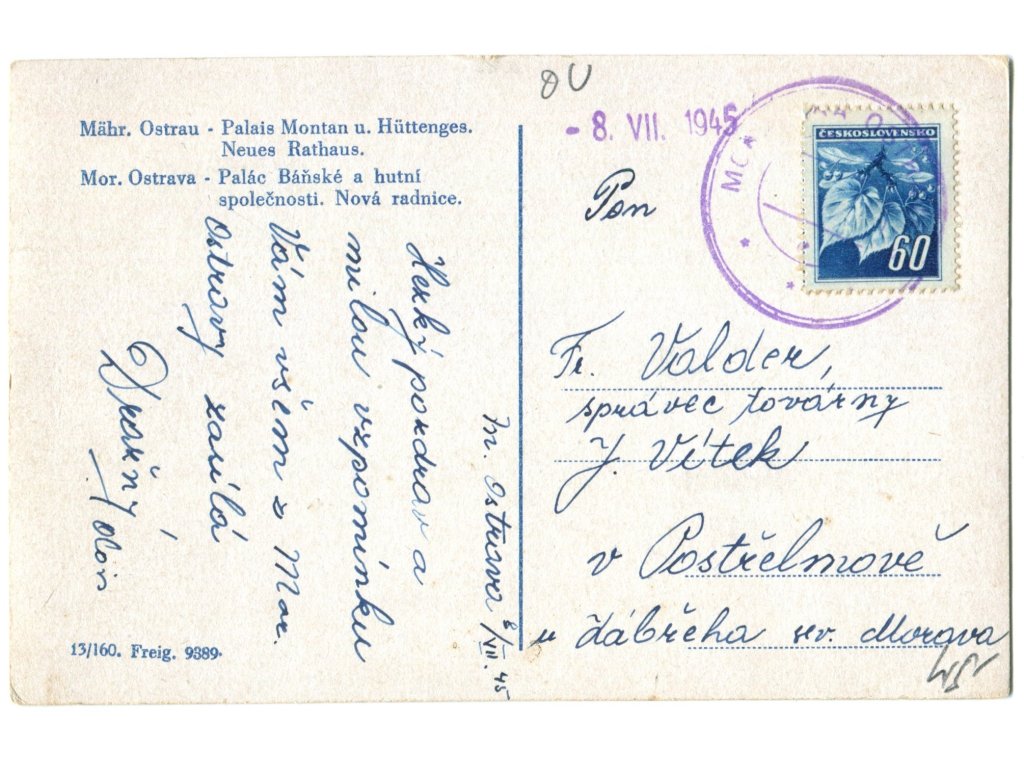 Mähr. Ostrau - Palais Montan u. Hüttenges.
Neues Rathaus.
Mor. Ostrava - Palác Báňské a hutní
společnosti. Nová radnice.
Hezký pozdrav a
milou vzpomínku
Vám všem z Mor.
Ostravy zasílá
M. Ostrava 8/VII. 45
13/160. Freig. 9389.
- 8. VII. 1945
ČESKOSLOVENSKO
60
Pan
Fr. Valder,
správce továrny
J. Vítek
v Postřelmově
u Zábřeha sev. Morava